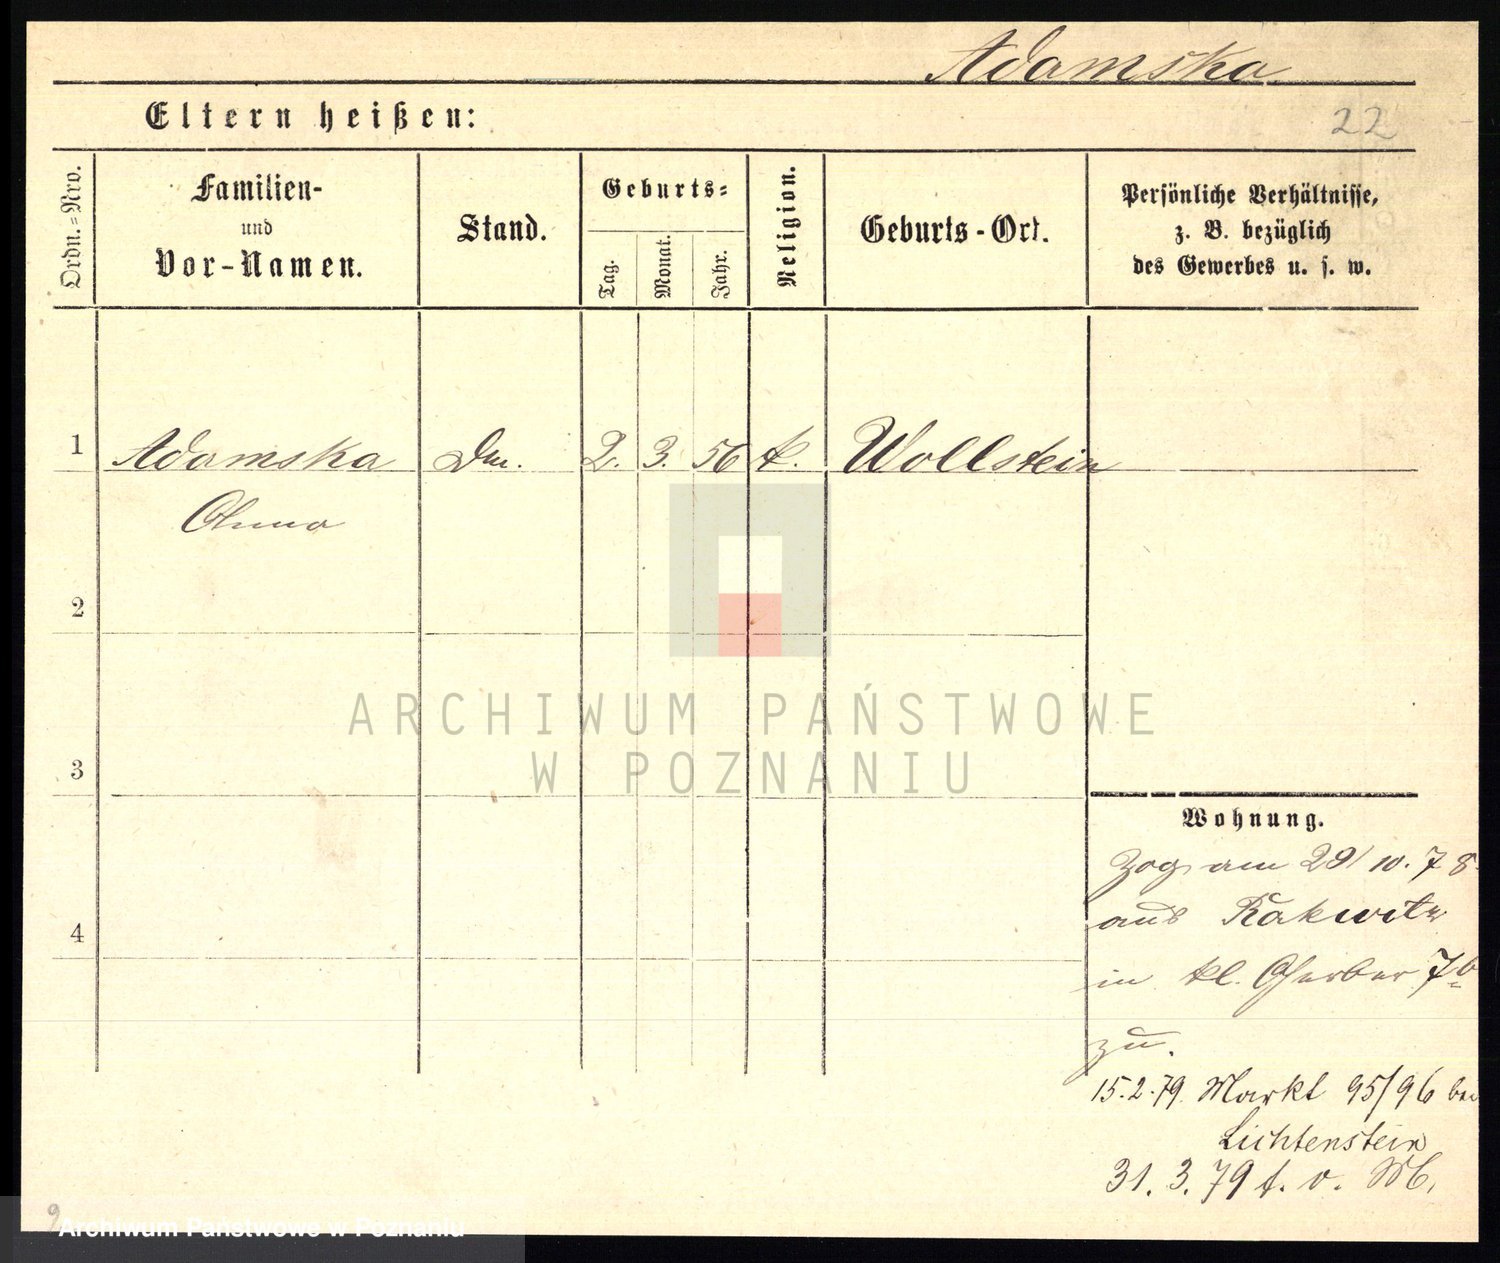 Adamska
Eltern heißen:
22
Ordn.=Nro.
Familien-
und
Vor-Namen.
Stand.
Geburts=
Tag.
Monat.
Jahr.
Religion.
Geburts-Ort.
Persönliche Verhältnisse,
z. B. bezüglich
des Gewerbes u. s. w.
1 Adamska 2. 3. 56 k. Wollstein
2
3
4
ARCHIWUM PAŃSTWOWE
W POZNANIU
Wohnung.
Zog am 29/10.78
aus Rakwitz
in kl. Gerber 7b
zu.
15.2.79. Markt 95/96 bei
Lichtenstein
31.3.79 f. v. M.
9
Archiwum Państwowe w Poznaniu